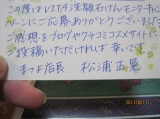 この度はレスタス洗顔石けんモニターキャン
ペーンにご応募ありがとうございました
ご感想をブログやクチコミサイトに
ご投稿いただければ幸いです
まつよ店長 松浦正晃